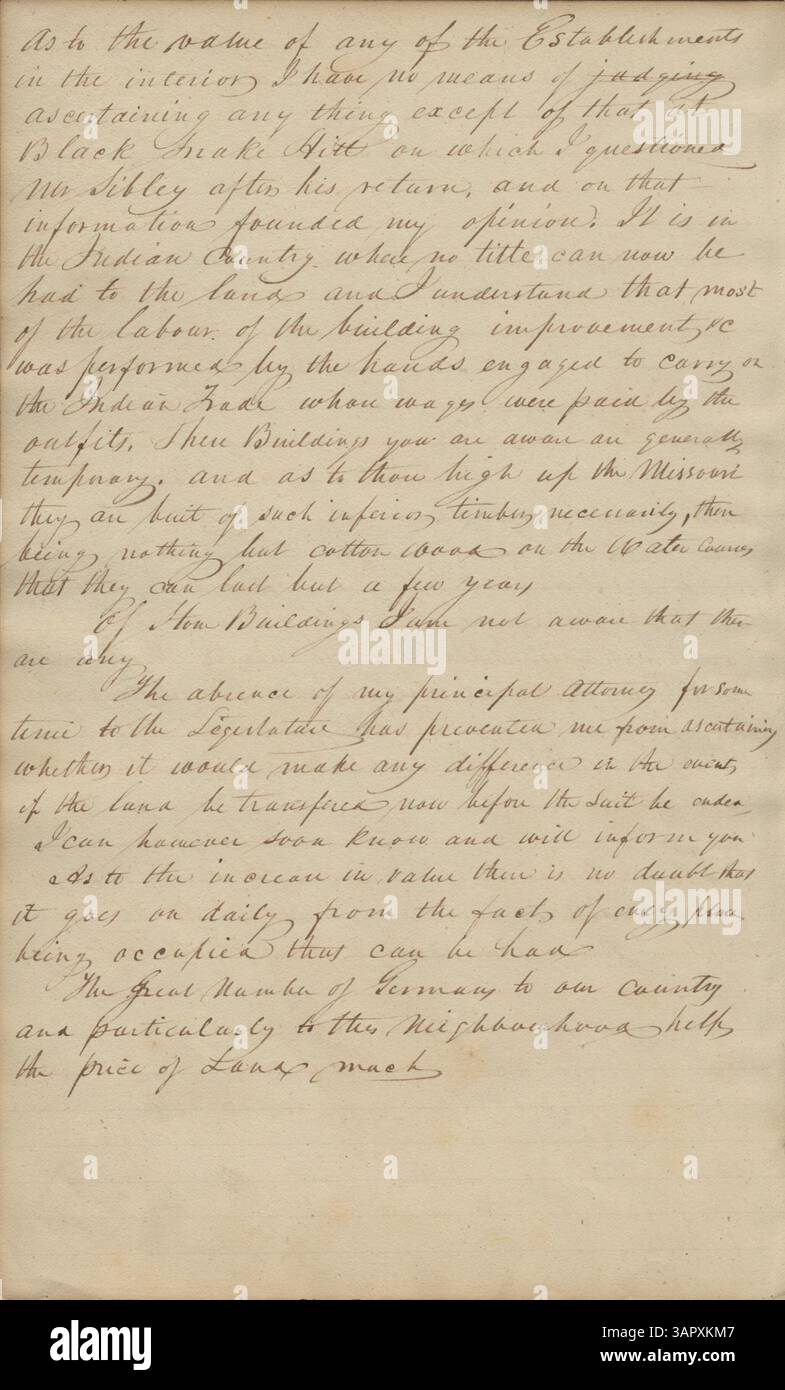 As to the value of any of the Establishments
in the interior I have no means of judging
ascertaining any thing except of that at
Black Snake Hill on which I questioned
Mr Sibley after his return, and on that
information founded my opinion. It is in
the Indian Country where no title can now be
had to the land and I understand that most
of the labour of the building improvement &c
was performed by the hands engaged to carry on
the Indian Trade whose wages were paid by the
outfits. These Buildings you are aware are generally
temporary. and as to those high up the Missouri
they are built of such inferior timber necessarily, there
being nothing but cotton wood on the Water Courses
that they can last but a few years
Of Stone Buildings I am not aware that there
are any
The absence of my principal Attorney for some
time to the Legislature has prevented me from ascertaining
whether it would make any difference in the event
if the land be transfered now before the suit be ended
I can however soon know and will inform you
As to the increase in value there is no doubt that
it goes on daily from the fact of every place
being occupied that can be had
The great Number of Germans to our country
and particularly to this Neighbourhood help
the price of Land much
alamy
alamy
Image ID: 3APXKM7
www.alamy.com